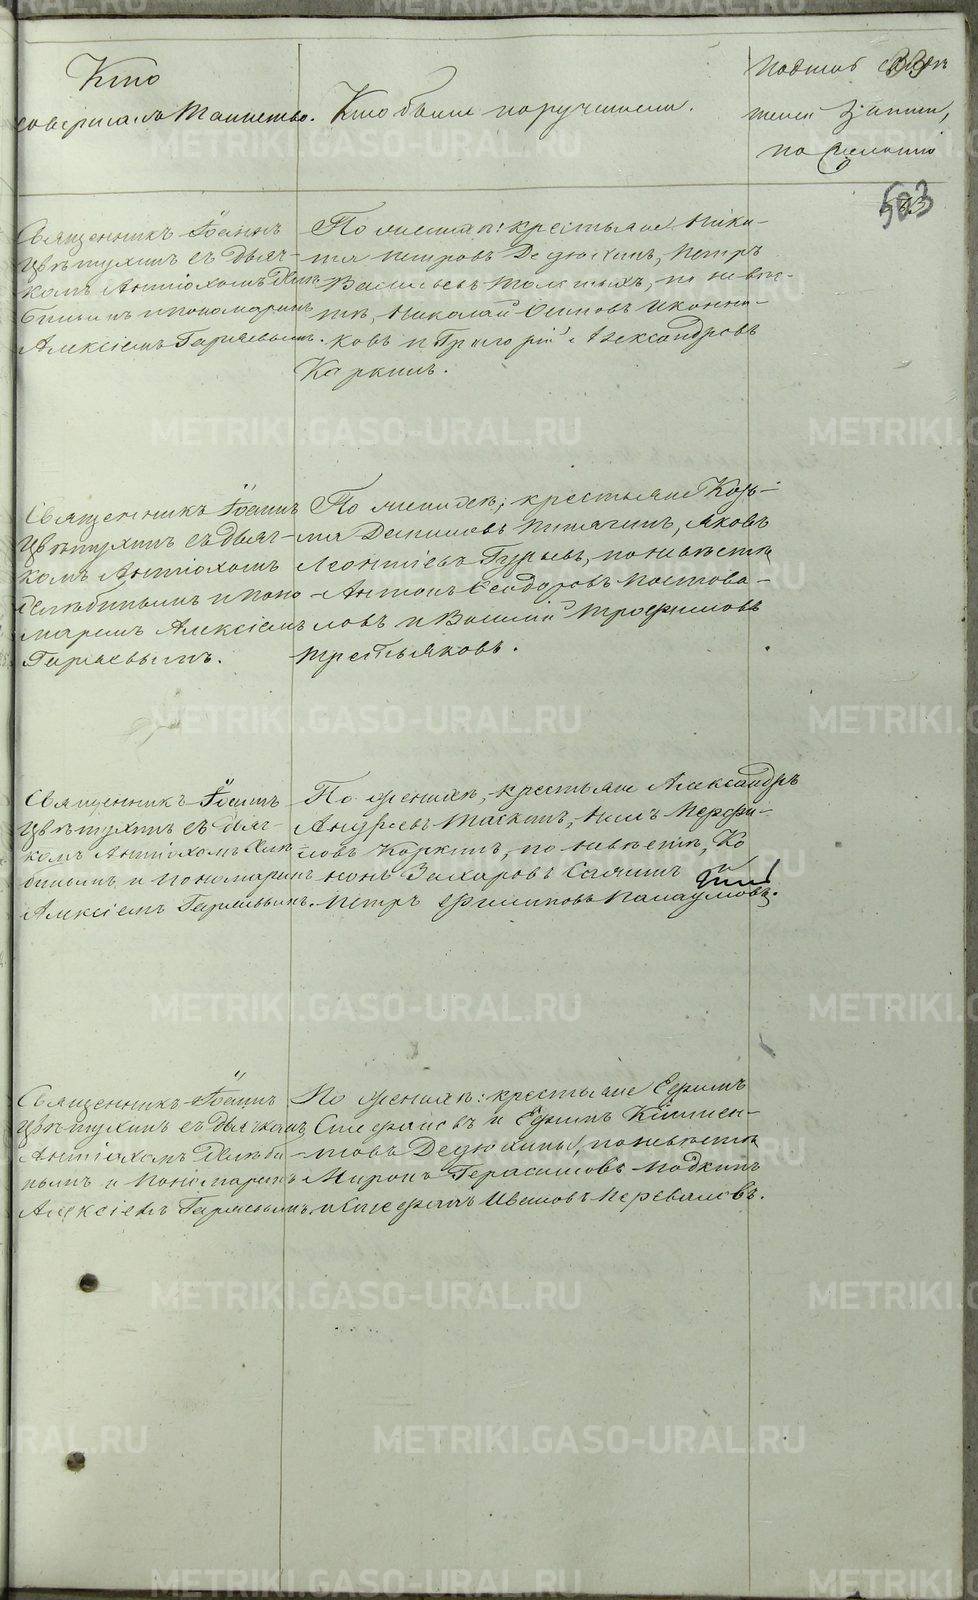 Кто
совершалъ Таинство.
Кто были поручители.
Подпись свидѣ-
телей записи,
по желанію
33
503
Священникъ Іоаннъ
Цвѣтухинъ съ дьяч-
комъ Антіохомъ Хлѣ-
бинымъ и пономаремъ
Алексіемъ Гаряевымъ.
По женихѣ: крестьяне Ники-
та Петровъ Дедюхинъ, Петръ
Васильевъ по невѣс-
тѣ, Николай Осиповъ Иконни-
ковъ и Григорій Александровъ
Каркинъ.
Священникъ Іоаннъ
Цвѣтухинъ съ дьяч-
комъ Антіохомъ
Хлѣбинымъ и поно-
маремъ Алексіемъ
Гаряевымъ.
По женихѣ; крестьяне Козь-
ма Денисовъ Яковъ
Леонтіевъ Гурьевъ, по невѣстѣ
Антонъ Ѳеодоровъ Постова-
ловъ и Василій Трофимовъ
Третьяковъ.
Священникъ Іоаннъ
Цвѣтухинъ съ дьяч-
комъ Антіохомъ Хлѣ-
бинымъ и пономаремъ
Алексіемъ Гаряевымъ.
По женихѣ, крестьяне Александръ
Андреевъ Таскинъ, Нилъ Перфи-
ловъ Коркинъ, по невѣстѣ, Ко-
нонъ Захаровъ и
Петръ Филиповъ
Священникъ Іоаннъ
Цвѣтухинъ съ дьячкомъ
Антіохомъ Хлѣби-
нымъ и пономаремъ
Алексіемъ Гаряевымъ.
По женихѣ: крестьяне Ефимъ
Стефановъ и Ефимъ Климен-
товъ Дедюхины, по невѣстѣ
Миронъ Герасимовъ
и Стефанъ Ивановъ Переваловъ.